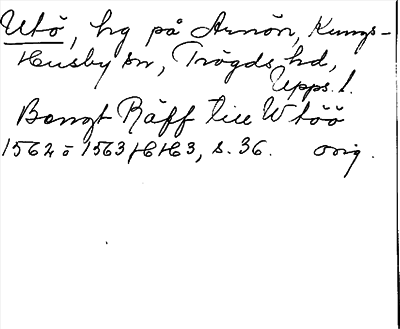 Utö, hg på Arnön, Kungs-
Husby sn, Trögds hd,
Upps. l.
Bengt Räff till Wtöö
1562 ö 1563 HH3, s. 36. orig.